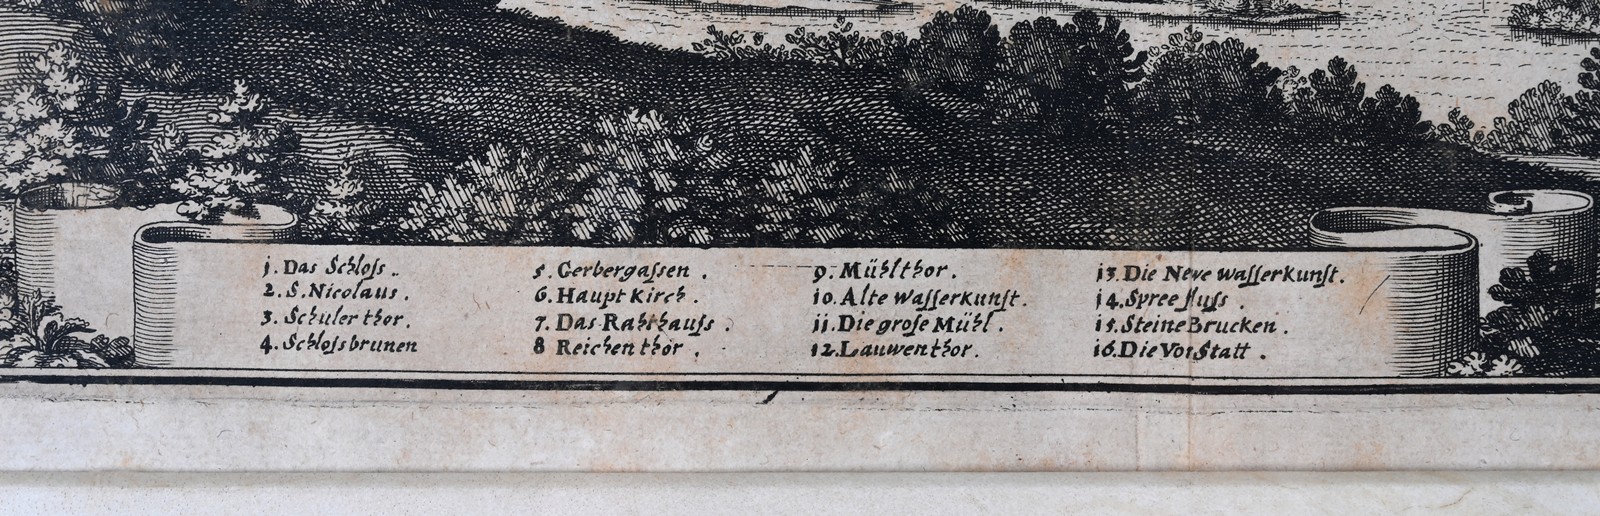 1. Das Schloſs.
2. S. Nicolaus.
3. Schuler thor.
4. Schloſsbrunen
5. Gerbergaſsen.
6. Haupt Kirch.
7. Das Rahthauſs.
8 Reichen thor.
9. Mühlthor.
10. Alte Waſſerkunſt.
11. Die groſe Mühl.
12. Lauwenthor.
13. Die Neve waſſerkunſt.
14. Spree fluſs.
15. Steine Brucken.
16. Die Vor Statt.